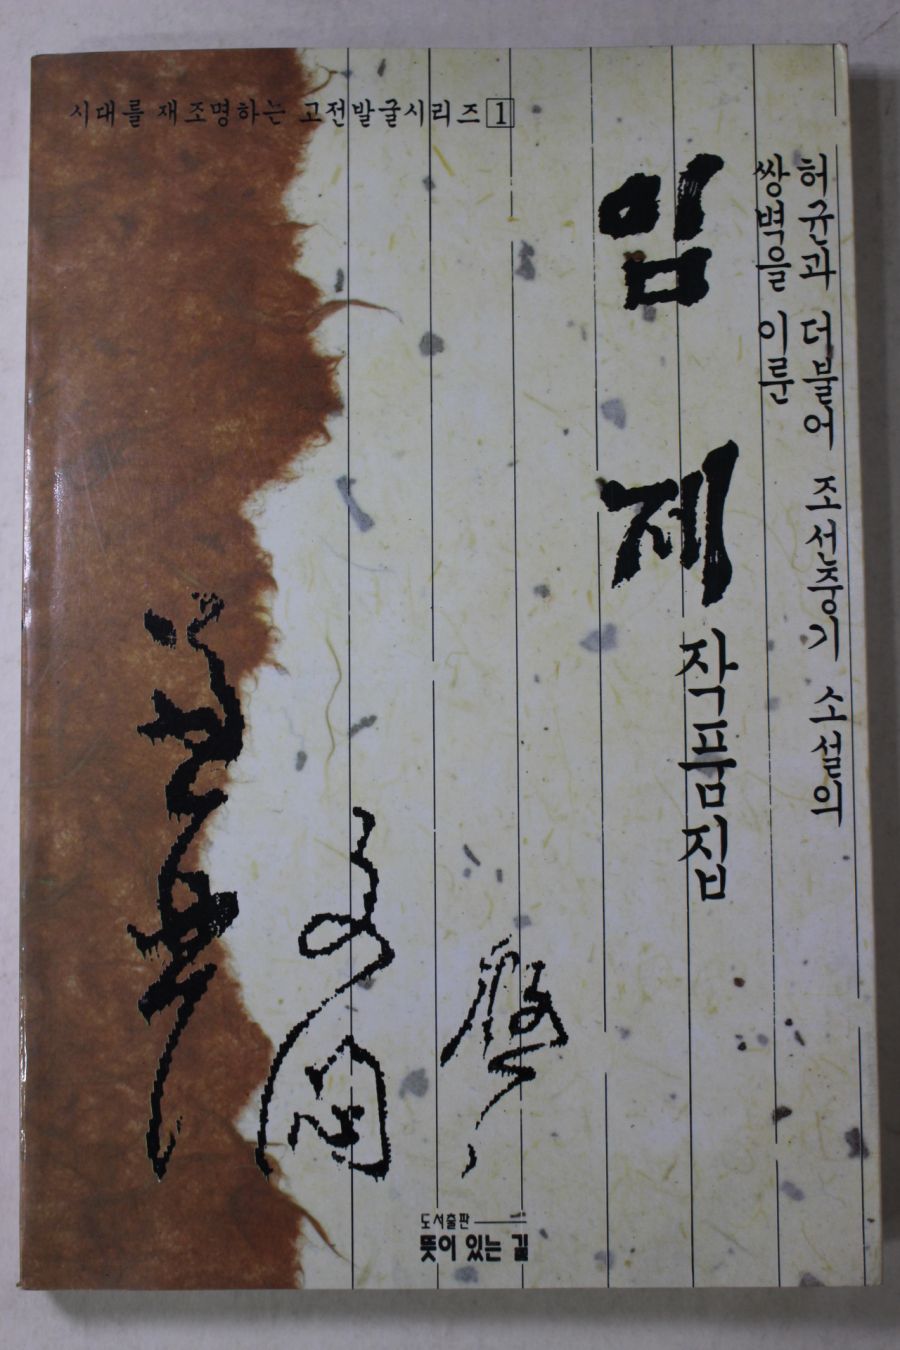 시대를 재조명하는 고전발굴시리즈 1
허균과 더불어 조선중기 소설의
쌍벽을 이룬
임제
작품집
도서출판
뜻이 있는 길